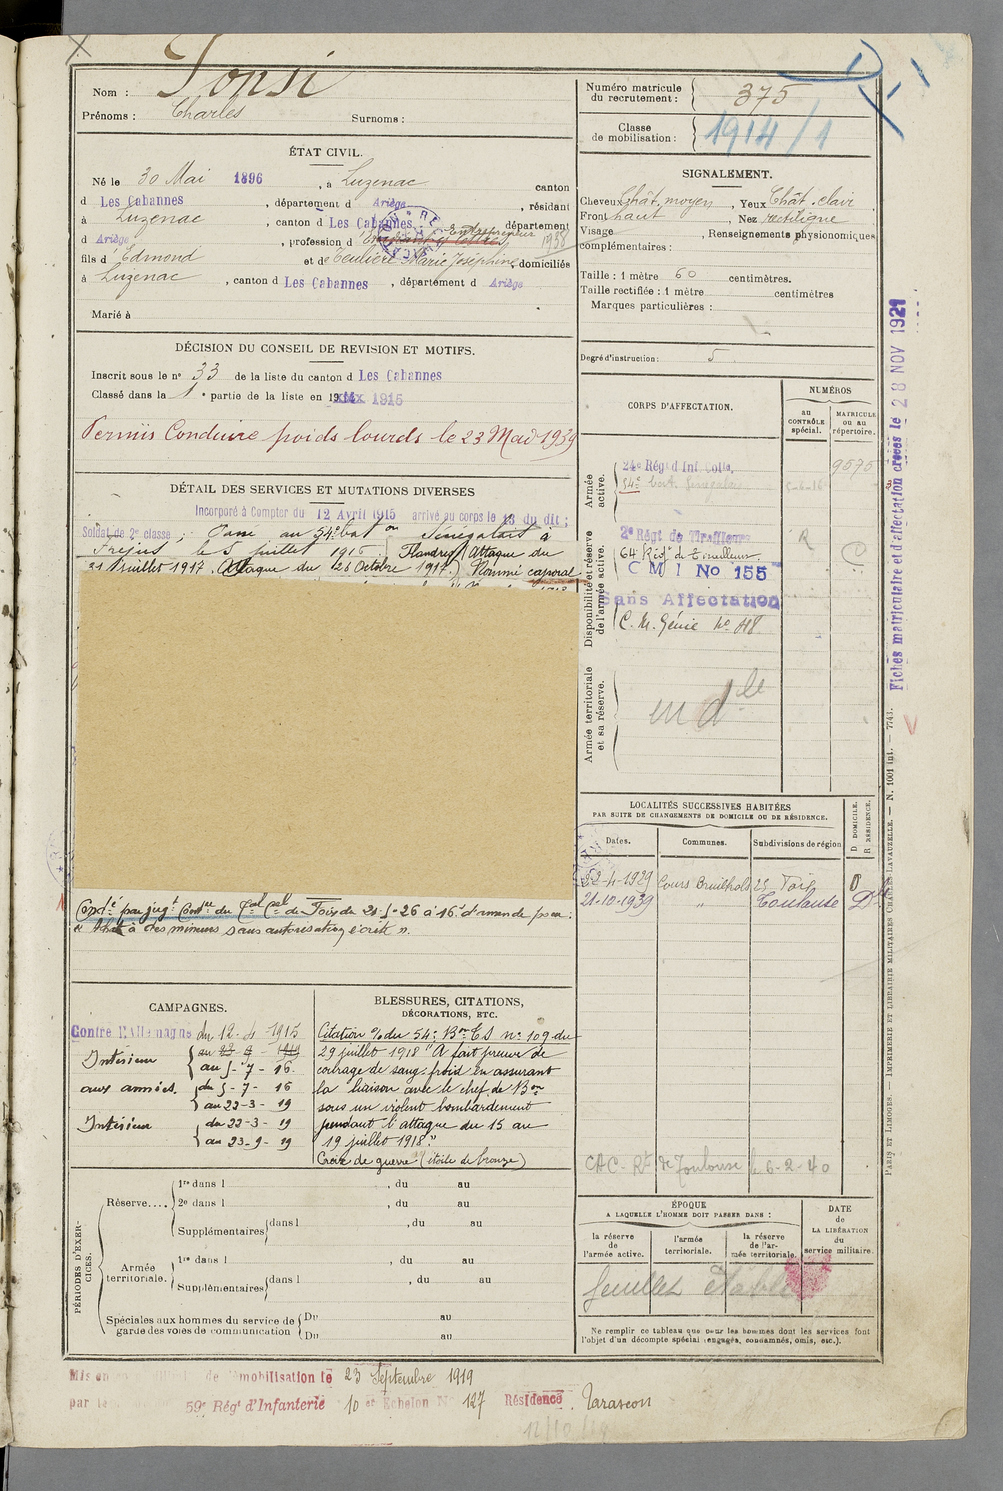 Nom :
Prénoms : Charles Surnoms :
ÉTAT CIVIL.
Né le 30 Mai 1896, à Luzenac canton
d Les Cabannes, département d Ariège, résidant
à Luzenac, canton d Les Cabannes, département
d Ariège, profession d Entrepreneur 1938
fils d Edmond et de Teulière Marie Joséphine, domiciliés
à Luzenac, canton d Les Cabannes, département d Ariège
Marié à
DÉCISION DU CONSEIL DE REVISION ET MOTIFS.
Inscrit sous le n° 33 de la liste du canton d Les Cabannes
Classé dans la 1e partie de la liste en 1915
Permis Conduire poids lourds le 23 Mad 1939
DÉTAIL DES SERVICES ET MUTATIONS DIVERSES
Incorporé à Compter du 12 Avril 1915 arrivé au corps le 13 du dit ;
Soldat de 2e classe ; Passé au 54e baton Sénégalais à
Fréjus le 5 juillet 1916. Flandres (Attaque du
31 juillet 1917. Attaque du 26 Octobre 1917) Nommé caporal
Condé par jugt Contre du Cal Cel de Foix du 21-5-26 à 16f d'amende pour :
à des mineurs sans autorisation écrite ".
CAMPAGNES.
Contre l'Allemagne du 12-4-1915
Intérieur
au 5-7-16.
aux armées. du 5-7-16
au 22-3-19
Intérieur du 22-3-19
au 23-9-19
BLESSURES, CITATIONS,
DÉCORATIONS, ETC.
Citation % du 54e Bon T S n° 109 du
29 juillet 1918 "A fait preuve de
courage de sang froid en assurant
la liaison avec le chef de Bon
sous un violent bombardement
pendant l'attaque du 15 au
19 juillet 1918."
Croix de guerre (étoile de bronze)
PÉRIODES D'EXERCICES.
Réserve.... 1re dans l , du au
2e dans l , du au
Supplémentaires dans l , du au
Armée territoriale. 1re dans l , du au
Supplémentaires dans l , du au
Spéciales aux hommes du service de garde des voies de communication Du au
Du au
Mis en de mobilisation le 23 Septembre 1919
par le 59e Régt d'Infanterie 10 et Echelon N° 127 Résidence, Tarascon
Numéro matricule du recrutement : 375
Classe de mobilisation : 1914/1
SIGNALEMENT.
Cheveux Chât. moyen, Yeux Chât. clair
Front haut, Nez rectiligne
Visage , Renseignements physionomiques
complémentaires :
Taille : 1 mètre 60 centimètres.
Taille rectifiée : 1 mètre centimètres
Marques particulières :
Degré d'instruction : 5
CORPS D'AFFECTATION.
NUMÉROS
au CONTRÔLE spécial.
MATRICULE ou au répertoire.
Armée active.
24e Régt d Inf Colle. 9575
54e bat. Sénégalais 5-6-16
Disponibilité et réserve de l'armée active.
2e Régt de Tirailleurs
64 Régt de Tirailleurs
C M I No 155
Sans Affectation
C. M. Génie No
Armée territoriale et sa réserve.
en dle
LOCALITÉS SUCCESSIVES HABITÉES
PAR SUITE DE CHANGEMENTS DE DOMICILE OU DE RÉSIDENCE.
Dates. Communes. Subdivisions de région D. DOMICILE. R. RÉSIDENCE.
22-4-1929 Foix D
21-10-1939 " Toulouse
CAC- Rt de Toulouse le 6-2-40
ÉPOQUE
A LAQUELLE L'HOMME DOIT PASSER DANS :
la réserve de l'armée active.
l'armée territoriale.
la réserve de l'armée territoriale.
DATE de LA LIBÉRATION du service militaire.
Ne remplir ce tableau que pour les hommes dont les services font
l'objet d'un décompte spécial (engagés, condamnés, omis, etc.).
Fiches matriculaire et d'affectation créées le 28 NOV 1921
PARIS ET LIMOGES. — IMPRIMERIE ET LIBRAIRIE MILITAIRES CHARLES-LAVAUZELLE. — N. 1001 int. — 7743.